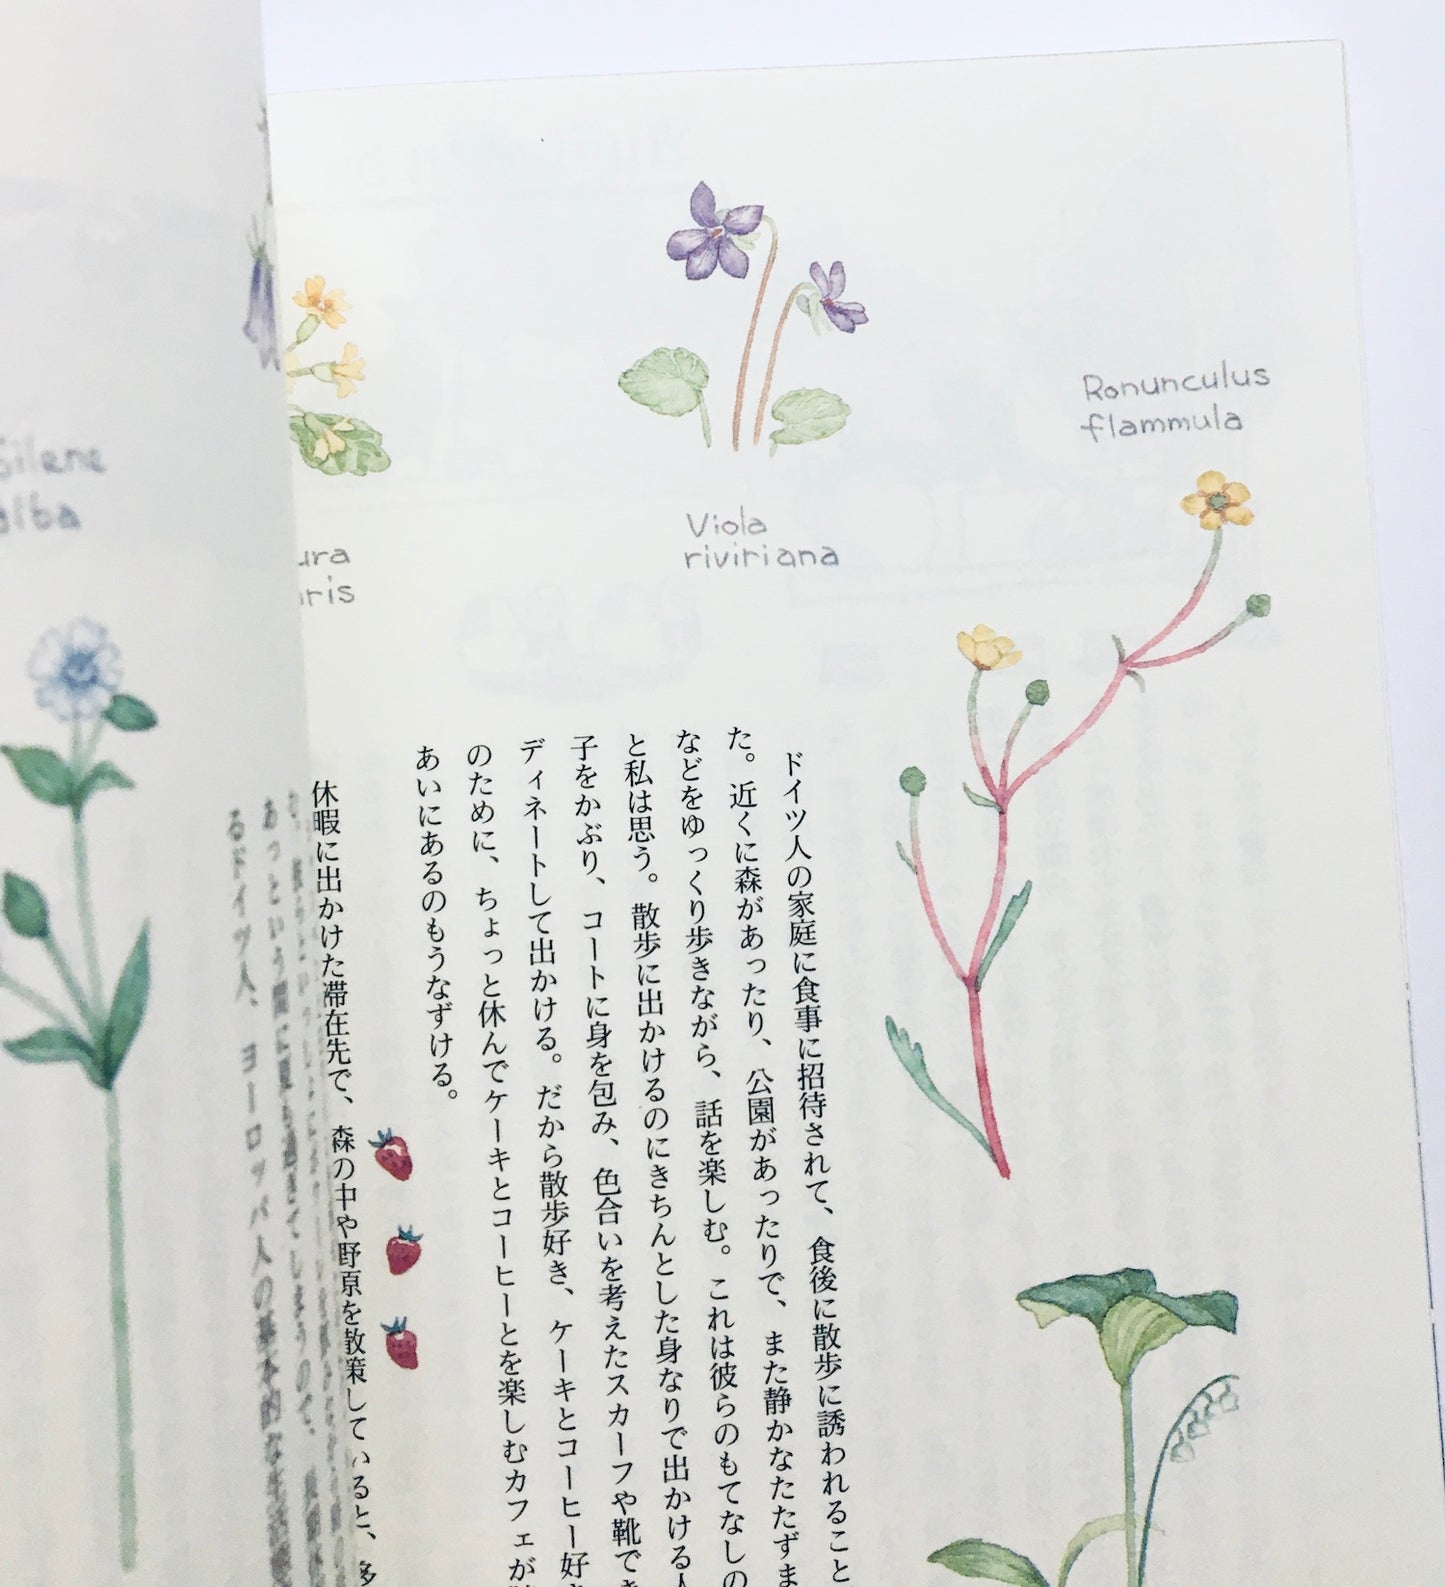 Silene
alba
ura
aris
Viola
riviriana
Ronunculus
flammula
ドイツ人の家庭に食事に招待されて、食後に散歩に誘われること
た。近くに森があったり、公園があったりで、また静かなたたずま
などをゆっくり歩きながら、話を楽しむ。これは彼らのもてなしの
と私は思う。散歩に出かけるのにきちんとした身なりで出かける人
子をかぶり、コートに身を包み、色合いを考えたスカーフや靴でき
ディネートして出かける。だから散歩好き、ケーキとコーヒー好き
のために、ちょっと休んでケーキとコーヒーとを楽しむカフェが
あいにあるのもうなずける。
休暇に出かけた滞在先で、森の中や野原を散策していると、多
あっという間に
るドイツ人、ヨーロッパ人の基本的な生活